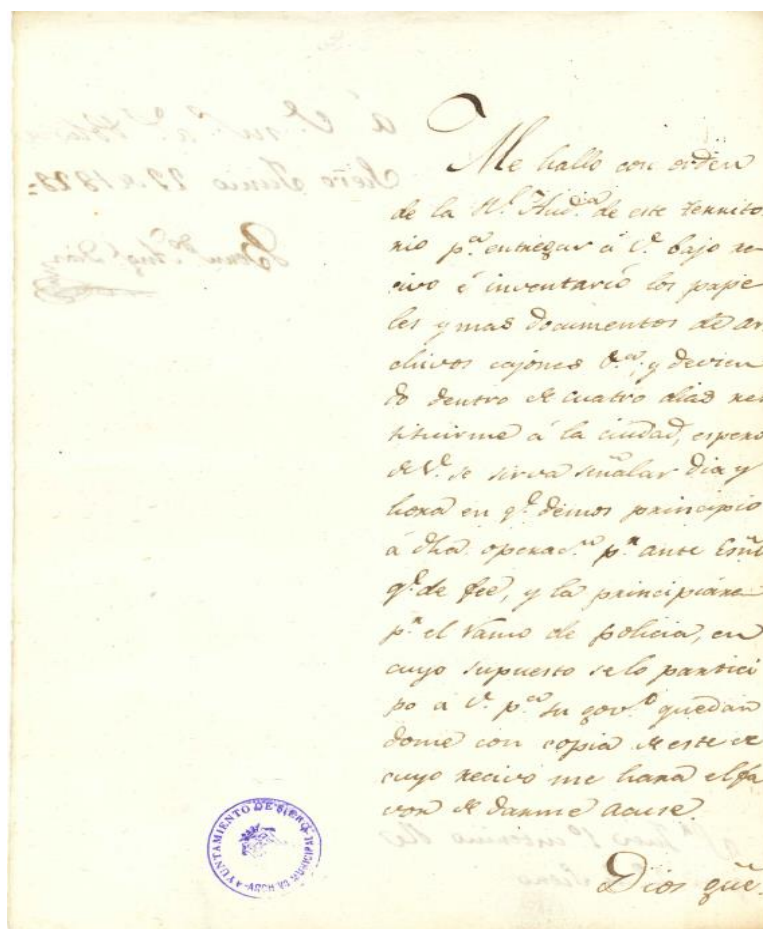 Me hallo con orden
de la Rl. Audª. de este territo
rio pª. entregar á V. bajo re
civo é inventarió los pape
les y mas documentos de ar
chivos cajones &ª; y devien
do dentro de cuatro dias res
tituirme á la ciudad, espero
de V. se sirva señalar dia y
hora en qe. demos principio
á dha operacn. pr. ante Esño
qe. de fee, y la principiare
pr. el ramo de policia, en
cuyo supuesto se lo partici
po a V. pª. su govno. quedan
dome con copia de este de
cuyo recivo me hara el fa
vor de darme acuse.
Dios güe.
AYUNTAMIENTO DE SIERO
ARCHIVO MUNICIPAL